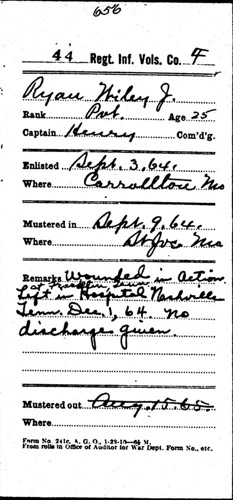 656
44 Regt. Inf. Vols. Co. F
Ryan Wiley J.
Rank Pvt. Age 25
Captain Henry Com'd'g.
Enlisted Sept. 3, 64.
Where Carrollton Mo
Mustered in Sept. 9, 64.
Where St Jos. Mo
Remarks Wounded in Action
at Franklin Tenn
Left in Hospital Nashville
Tenn. Dec. 1, 64. No
discharge given.
Mustered out Aug. 15. 65.
Where
Form No. 241c, A. G. O., 1-29-10— M.
From rolls in Office of Auditor for War Dept. Form No., etc.